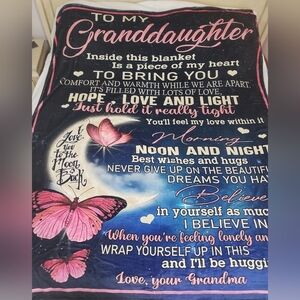 TO MY
Granddaughter
Inside this blanket
Is a piece of my heart
TO BRING YOU
COMFORT AND WARMTH WHILE WE ARE APART.
IT'S FILLED WITH LOTS OF LOVE,
HOPE, LOVE AND LIGHT
Just hold it really tight
You'll feel my love within it
Morning
NOON AND NIGHT
Best wishes and hugs
NEVER GIVE UP ON THE BEAUTIF
DREAMS YOU HA
Believe
in yourself as muc
I BELIEVE IN
"When you're feeling lonely an
WRAP YOURSELF UP IN THIS
and I'll be huggi
Love, your Grandma
I Love
You
to the
Moon
Back